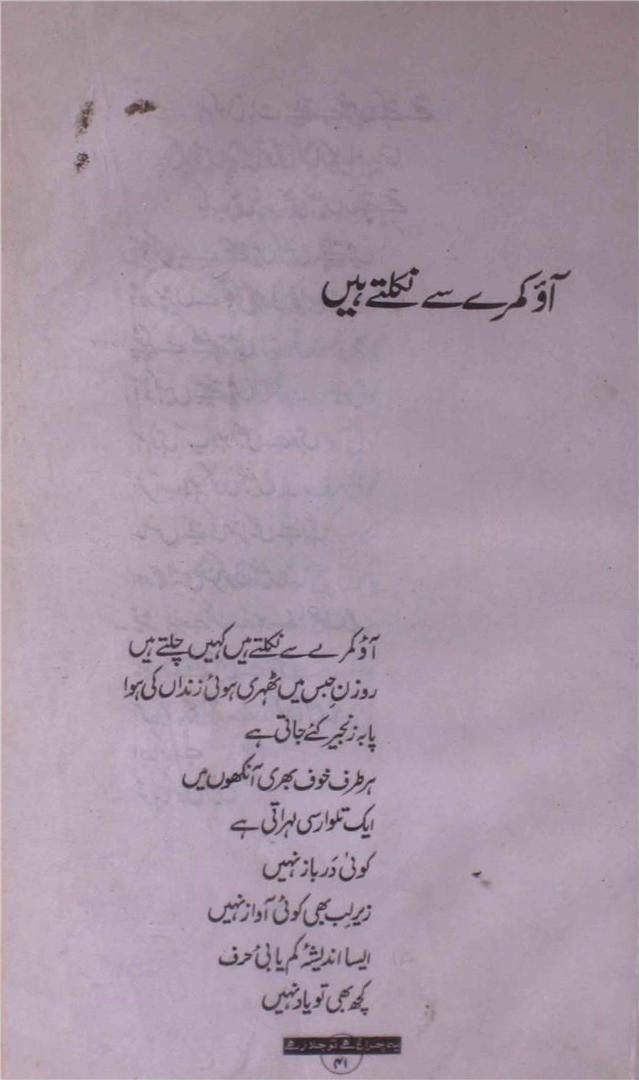 آؤ کمرے سے نکلتے ہیں
آؤ کمرے سے نکلتے ہیں کہیں چلتے ہیں
روزنِ حبس میں ٹھہری ہوئی زنداں کی ہوا
پابہ زنجیر کئے جاتی ہے
ہر طرف خوف بھری آنکھوں میں
ایک تلوار سی لہراتی ہے
کوئی دَر باز نہیں
زیرِ لب بھی کوئی آواز نہیں
ایسا اندیشۂ کم یابیٔ حرف
کچھ بھی تو یاد نہیں
یہ چراغ ہے تو جلا رہے
۴۱